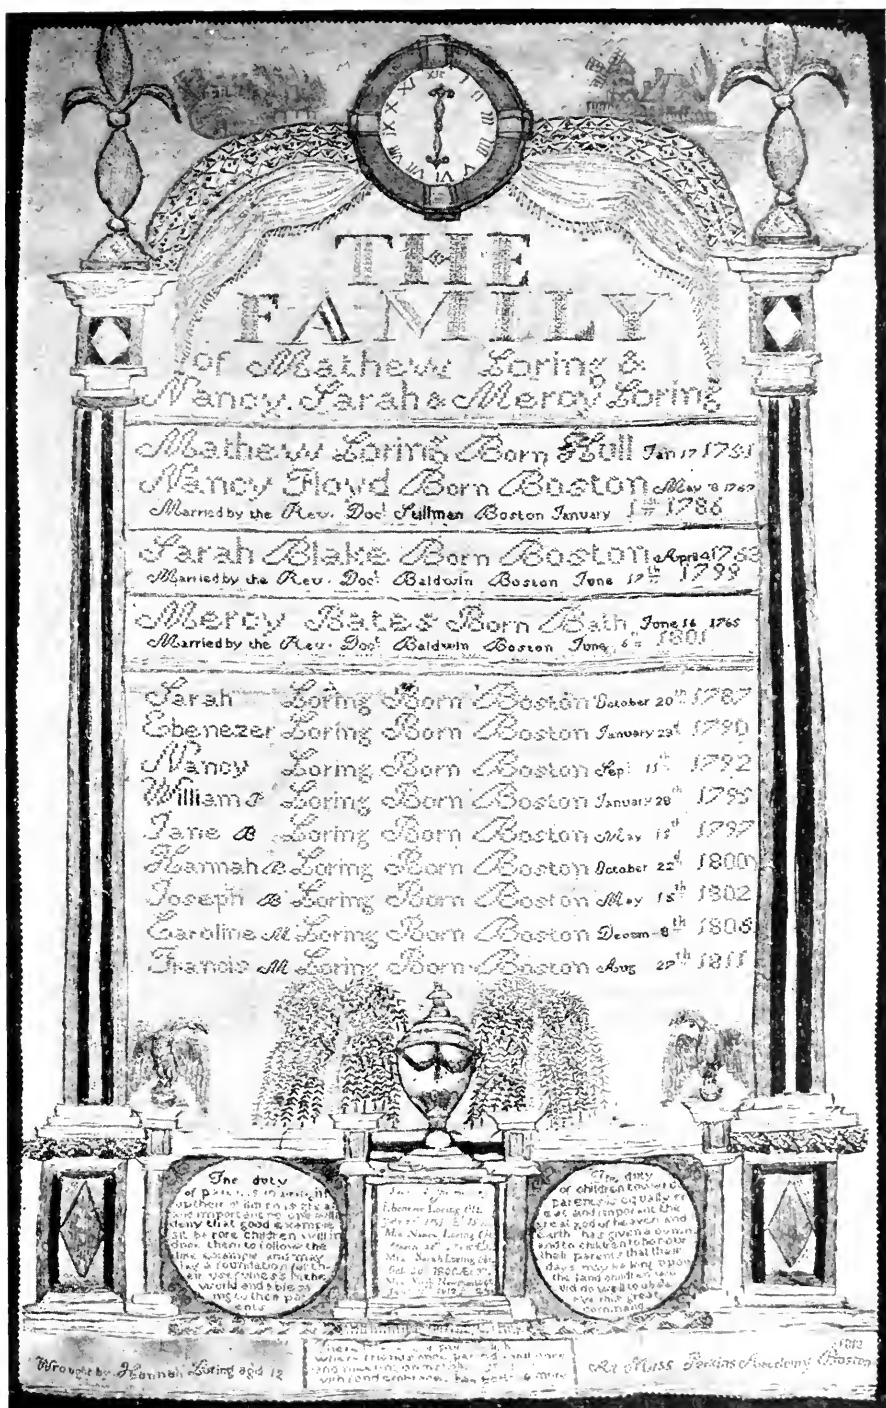 XII I II III IIII V VI VII VIII IX X XI
THE
FAMILY
of Mathew Loring &
Nancy. Sarah & Mercy Loring
Mathew Loring Born Hull Jan 17 1751
Nancy Floyd Born Boston May 8 1767
Married by the Rev. Doct Stillman Boston January 1th 1786
Sarah Blake Born Boston April 4 1763
Married by the Rev. Doct Baldwin Boston June 17th 1799
Mercy Bates Born Bath June 16 1765
Married by the Rev. Doct Baldwin Boston June 6th 1801
Sarah Loring Born Boston October 20th 1787
Ebenezer Loring Born Boston January 23d 1790
Nancy Loring Born Boston Sept 11th 1792
William P Loring Born Boston January 28th 1795
Jane B Loring Born Boston May 15th 1797
Hannah B Loring Born Boston October 22d 1800
Joseph B Loring Born Boston May 15th 1802
Caroline M Loring Born Boston Decem 8th 1806
Francis M Loring Born Boston Aug 27th 1811
The duty
of parents in
up their children is great
and important no one will
deny that good example
set before children will in
duce them to follow the
like example and may
lay a foundation for th
eir usefulness in the
world and bless
ing to their par
ents
Ebenezer Loring
Mrs Nancy Loring
Mrs Sarah Loring
The duty
of children toward
parents is equally gr
eat and important the
great god of heaven and
Earth has given a comm
and to children to honour
their parents that their
days may be long upon
the land children wo
uld do well to obse
rve this great
command
where friends
with fond embraces & more
Wrought by Hannah Loring aged 12
At Miss Perkins Academy Boston
1812